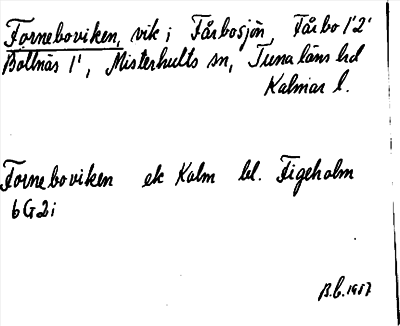 Forneboviken, vik i Fårbosjön, Fårbo 1'2'
Bollnäs 1', Misterhults sn, Tuna läns hd
Kalmar l.
Forneboviken ek Kalm bl. Figeholm
6G2i
B.C. 1957